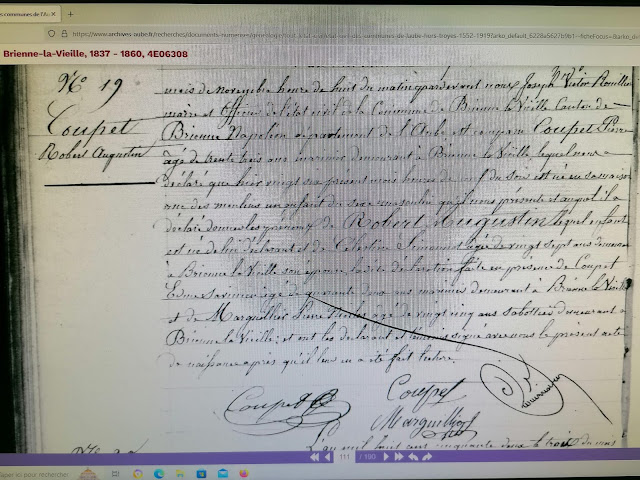 https://www.archives-aube.fr/recherches/documents-numerises/genealogie/
Brienne-la-Vieille, 1837 - 1860, 4E06308
N° 19
Coupet
Robert Augustin
mois de novembre heure de huit du matin pardevant nous Joseph Victor
maire et officier de l'état civil de la Commune de Brienne la Vieille Canton de
Brienne Napoléon département de l'Aube est comparu Coupet Pierre
âgé de trente trois ans marinier demeurant à Brienne la Vieille, lequel nous a
déclaré que hier vingt six présent mois heure de neuf du soir est né en sa maison
rue des moulins un enfant du sexe masculin qu'il nous présente et auquel il a
déclaré donner les prénoms de Robert Augustin lequel enfant
est né de lui déclarant et de Célestine âgée de vingt sept ans demeurant
à Brienne la Vieille son épouse, la dite déclaration faite en présence de Coupet
âgé de quarante deux ans marinier demeurant à Brienne la Vieille
et de Marguillier Pierre Nicolas âgé de vingt cinq ans Sabottier demeurant à
Brienne la Vieille; et ont les déclarant et témoins signé avec nous le présent acte
de naissance après qu'il leur en a été fait lecture.
Coupet
Coupet
Marguillier
L'an mil huit cent cinquante deux le trois du mois
111 / 190